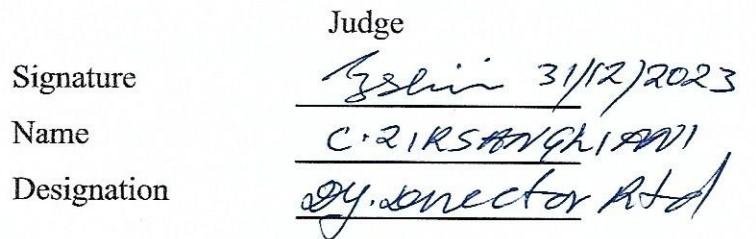 Judge
Signature 31/12/2023
Name C. ZIRSANGLIANI
Designation Dy. Director Rtd